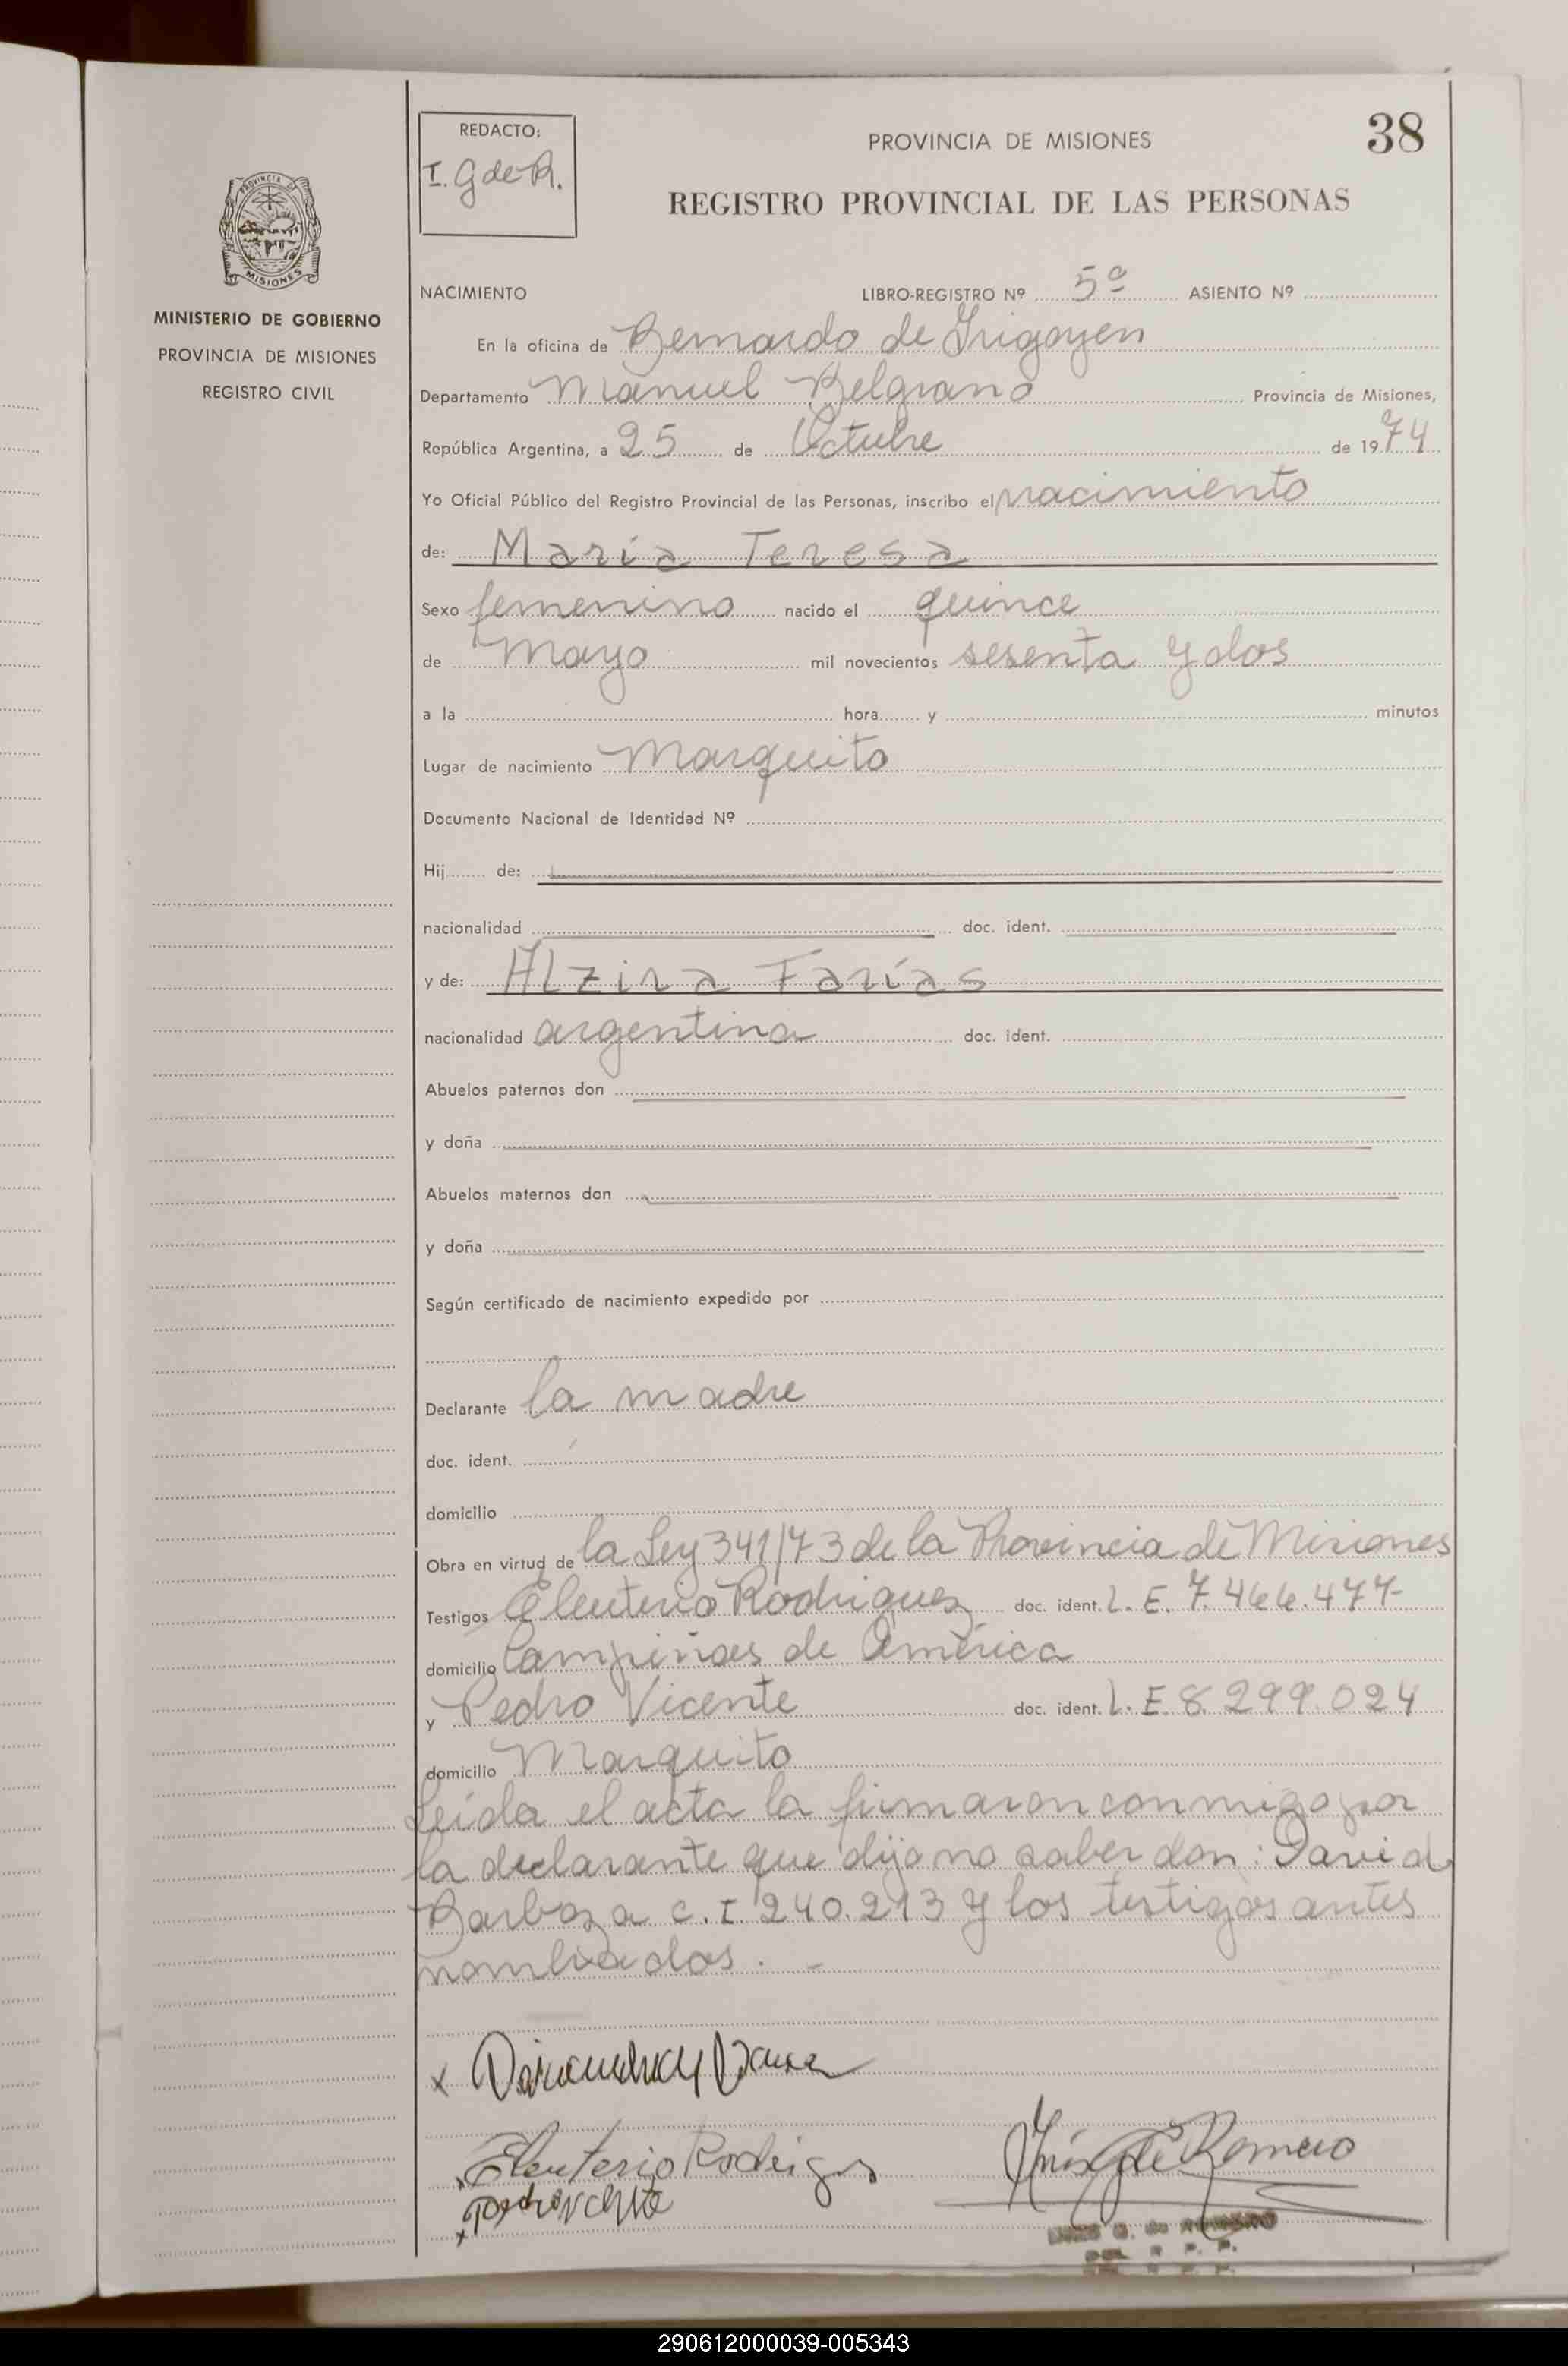 38
REDACTO:
I. G de R.
PROVINCIA DE MISIONES
REGISTRO PROVINCIAL DE LAS PERSONAS
PROVINCIA D
MISIONES
MINISTERIO DE GOBIERNO
PROVINCIA DE MISIONES
REGISTRO CIVIL
NACIMIENTO LIBRO-REGISTRO Nº 5º ASIENTO Nº
En la oficina de Bernardo de Irigoyen
Departamento Manuel Belgrano Provincia de Misiones,
República Argentina, a 25 de Octubre de 1974
Yo Oficial Público del Registro Provincial de las Personas, inscribo el nacimiento
de: María Teresa
Sexo femenino nacido el quince
de Mayo mil novecientos sesenta y dos
a la hora y minutos
Lugar de nacimiento Marquito
Documento Nacional de Identidad Nº
Hij de:
nacionalidad doc. ident.
y de: Alzira Farías
nacionalidad argentina doc. ident.
Abuelos paternos don
y doña
Abuelos maternos don
y doña
Según certificado de nacimiento expedido por
Declarante la madre
doc. ident.
domicilio
Obra en virtud de la Ley 341/73 de la Provincia de Misiones
Testigos Eleuterio Rodriguez doc. ident. L. E. 7.466.477-
domicilio Campiñas de América
y Pedro Vicente doc. ident. L. E 8.299.024
domicilio Marquito
Leída el acta la firmaron conmigo por
la declarante que dijo no saber don: David
Barboza C. I. 240.213 y los testigos antes
nombrados. -
x
x Eleuterio Rodrigus
x Pedro vcente
Inés G de Romero
INES G. de ROMERO
290612000039-005343